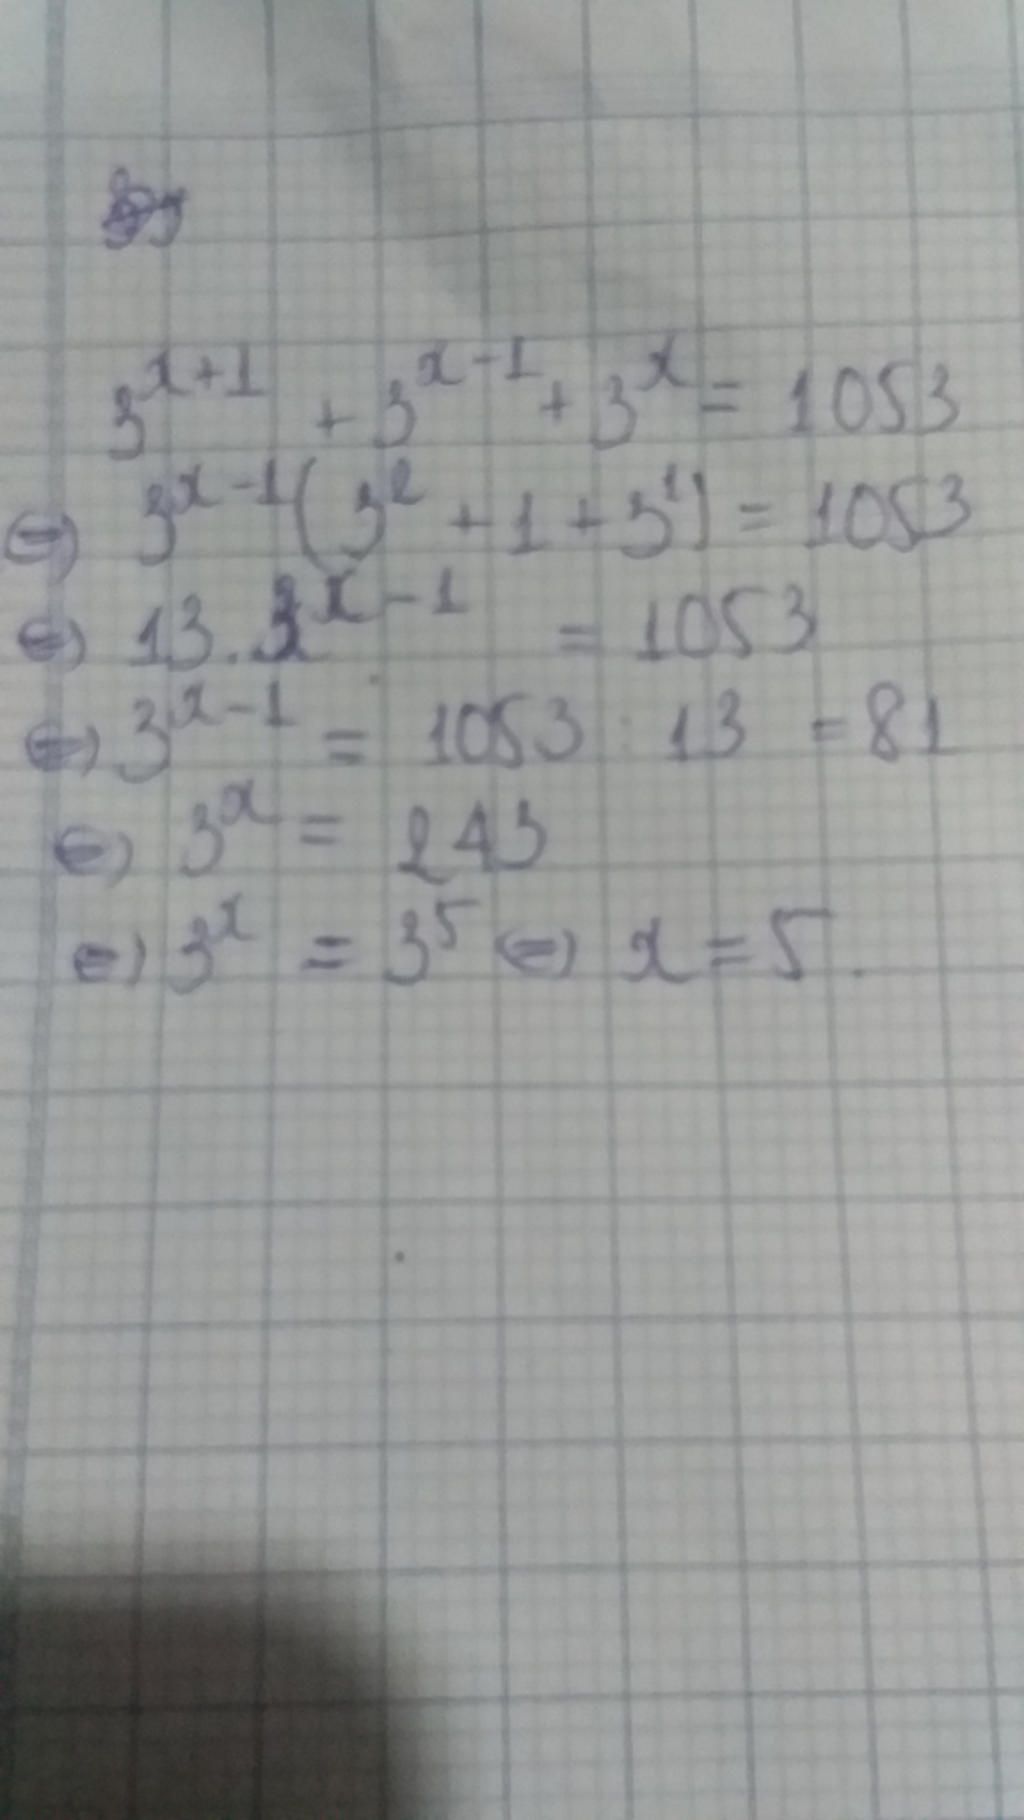 3^{x+1} + 3^{x-1} + 3^x = 1053
⇔ 3^{x-1}(3^2 + 1 + 3^1) = 1053
⇔ 13.3^{x-1} = 1053
⇔ 3^{x-1} = 1053 : 13 = 81
⇔ 3^x = 243
⇔ 3^x = 3^5 ⇔ x = 5.